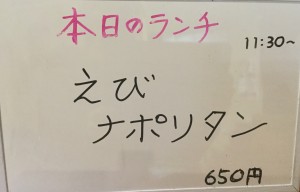 本日のランチ
11:30~
えび
ナポリタン
650円